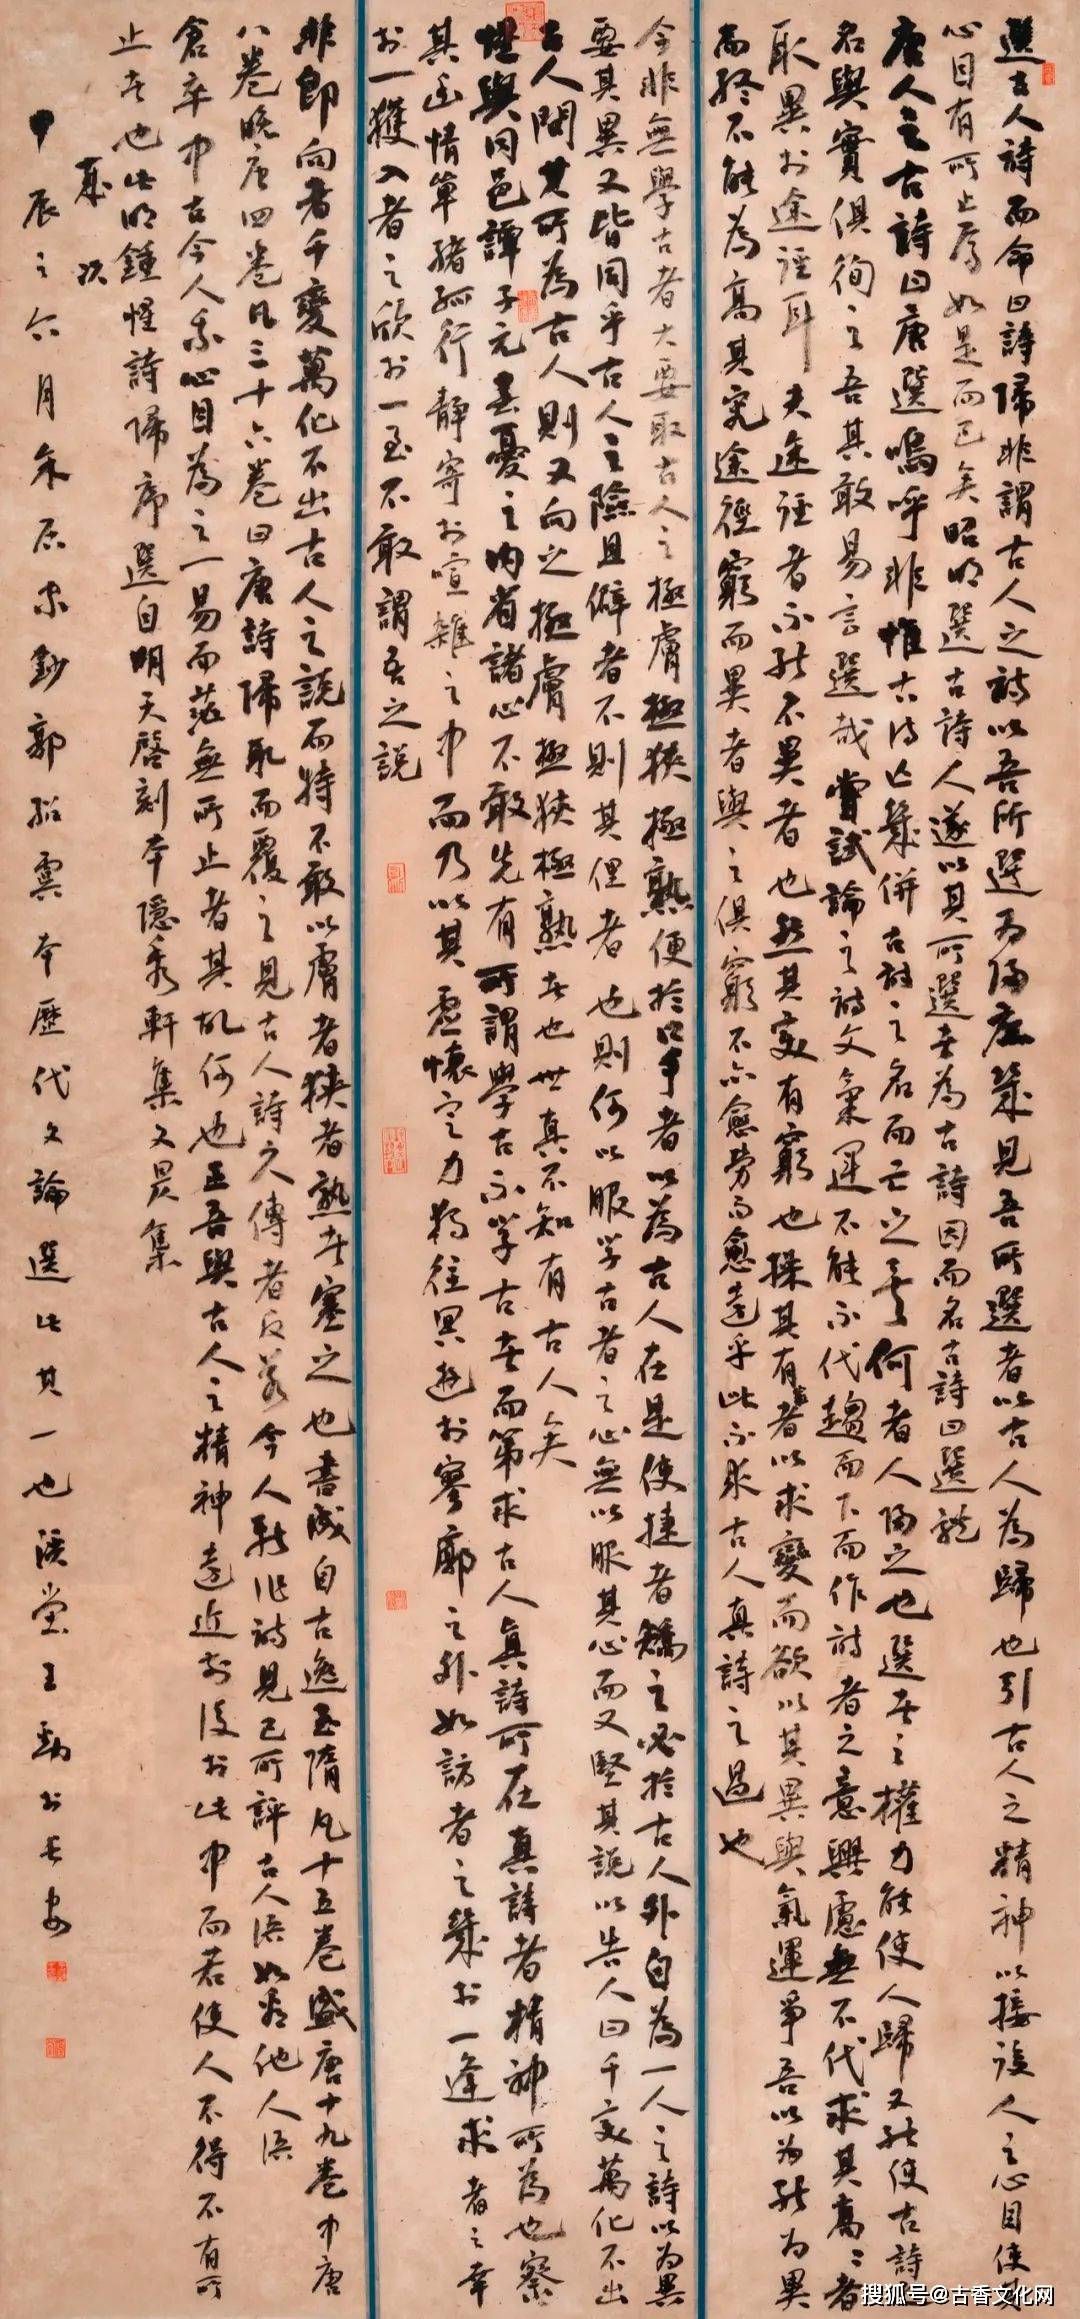 選古人詩而命曰詩歸非謂古人之詩以吾所選為歸庶幾見吾所選者以古人為歸也引古人之精神以接後人之心目使其
心目有所止焉如是而已矣昭明選古詩人遂以其所選者為古詩因而名古詩曰選體
唐人之古詩曰唐選嗚呼非惟古詩亡幾併古詩之名而亡之矣何者人歸之也選者之權力能使人歸又能使古詩之
名與實俱徇之吾其敢易言選哉嘗試論之詩文氣運不能不代趨而下而作詩者之意興慮無不代求其高高者
取異於途徑耳夫途徑者不能不異者也然其變有窮也操其有窮者以求變而欲以其異與氣運爭吾以為能為異
而終不能為高其究途徑窮而異者與之俱窮不亦愈勞而愈遠乎此不求古人真詩之過也
今非無學古者大要取古人之極膚極狹極熟便於口手者以為古人在是使捷者矯之必於古人外自為一人之詩以為異
要其異又皆同乎古人之險且僻者不則其俚者也則何以服學古者之心無以服其心而又堅其說以告人曰千變萬化不出
古人問其所為古人則又向之極膚極狹極熟者也世真不知有古人矣
惺與同邑譚子元春憂之內省諸心不敢先有所謂學古不學古者而第求古人真詩所在真詩者精神所為也察
其幽情單緒孤行靜寄於喧雜之中而乃以其虛懷定力獨往冥遊於寥廓之外如訪者之幾於一逢求者之幸
於一獲入者之欣於一至不敢謂吾之說
非即向者千變萬化不出古人之說而特不敢以膚者狹者熟者塞之也書成自古逸至隋凡十五卷盛唐十九卷中唐
八卷晚唐四卷凡三十六卷曰唐詩歸取而覆之見古人詩久傳者反若今人新作詩見己所評古人語如看他人語
倉卒中古今人我心目為之一易而茫無所止者其故何也正吾與古人之精神遠近於後於此中而若使人不得不有所
止者也此明鍾惺詩歸序選自明天啓刻本隱秀軒集文昃集
甲辰之六月朱原室鈔郭紹虞本歷代文論選此其一也漢堂王勁於長安
搜狐号@古香文化网